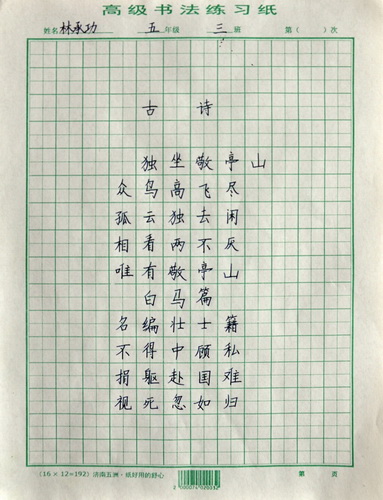 高级书法练习纸
姓名 林承功 五 年级 三 班 第( )次
古诗
独坐敬亭山
众鸟高飞尽
孤云独去闲
相看两不厌
唯有敬亭山
白马篇
名编壮士籍
不得中顾私
捐躯赴国难
视死忽如归
(16×12=192) 济南五洲·纸好用的舒心
第 页